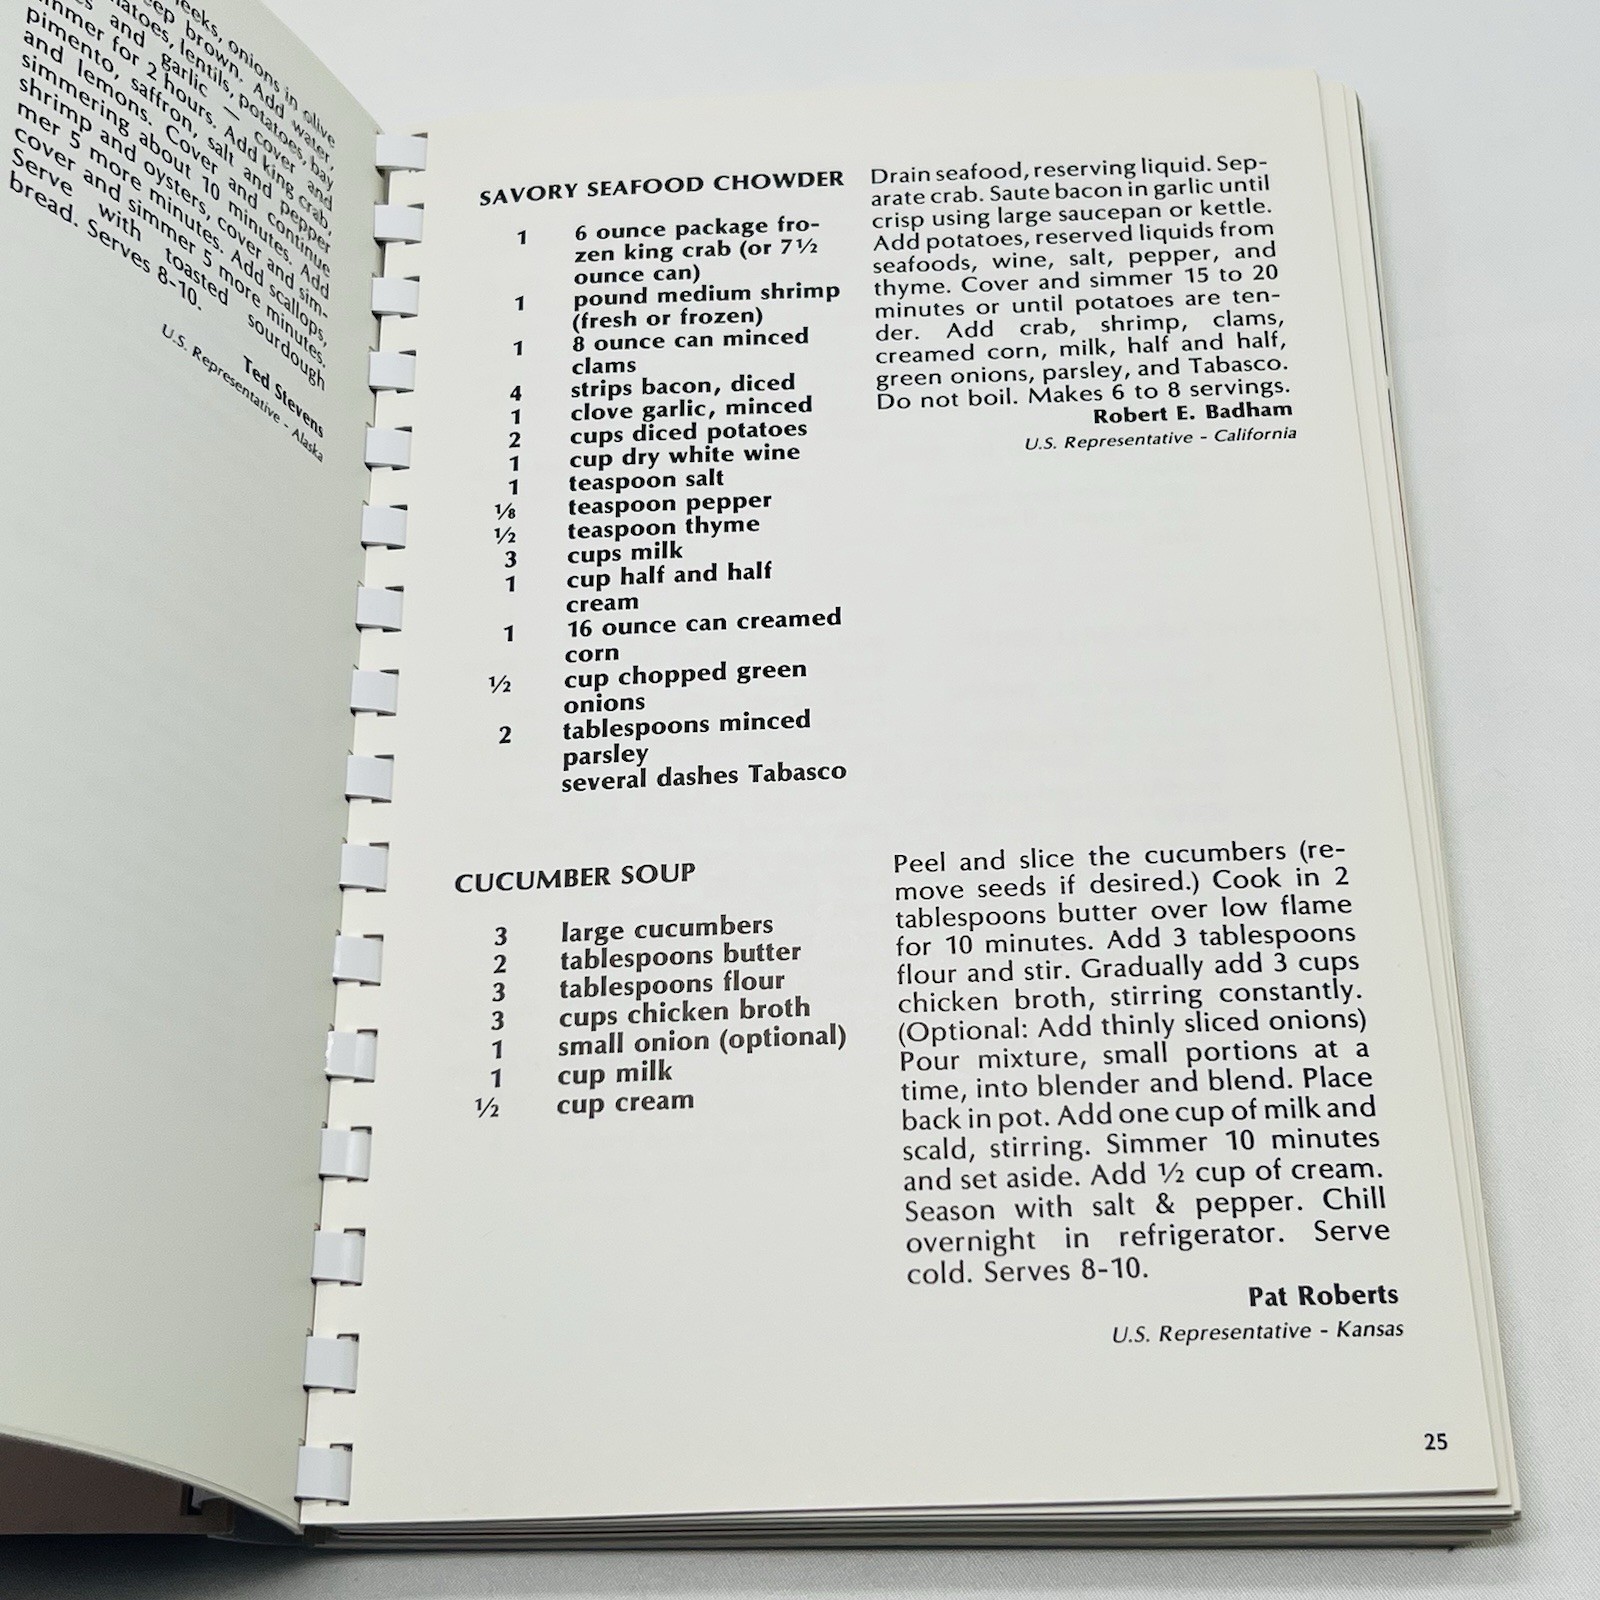 eeks, onions in olive
eep brown. Add water,
atoes, lentils, potatoes, bay
s and garlic — cover and
mmer for 2 hours. Add king crab,
pimento, saffron, salt and pepper
and lemons. Cover and continue
simmering about 10 minutes. Add
shrimp and oysters, cover and sim-
mer 5 more minutes. Add scallops,
cover and simmer 5 more minutes.
Serve with toasted sourdough
bread. Serves 8-10.
Ted Stevens
U.S. Representative - Alaska
SAVORY SEAFOOD CHOWDER
1 6 ounce package fro-
zen king crab (or 7½
ounce can)
1 pound medium shrimp
(fresh or frozen)
1 8 ounce can minced
clams
4 strips bacon, diced
1 clove garlic, minced
2 cups diced potatoes
1 cup dry white wine
1 teaspoon salt
⅛ teaspoon pepper
½ teaspoon thyme
3 cups milk
1 cup half and half
cream
1 16 ounce can creamed
corn
½ cup chopped green
onions
2 tablespoons minced
parsley
several dashes Tabasco
Drain seafood, reserving liquid. Sep-
arate crab. Saute bacon in garlic until
crisp using large saucepan or kettle.
Add potatoes, reserved liquids from
seafoods, wine, salt, pepper, and
thyme. Cover and simmer 15 to 20
minutes or until potatoes are ten-
der. Add crab, shrimp, clams,
creamed corn, milk, half and half,
green onions, parsley, and Tabasco.
Do not boil. Makes 6 to 8 servings.
Robert E. Badham
U.S. Representative - California
CUCUMBER SOUP
3 large cucumbers
2 tablespoons butter
3 tablespoons flour
3 cups chicken broth
1 small onion (optional)
1 cup milk
½ cup cream
Peel and slice the cucumbers (re-
move seeds if desired.) Cook in 2
tablespoons butter over low flame
for 10 minutes. Add 3 tablespoons
flour and stir. Gradually add 3 cups
chicken broth, stirring constantly.
(Optional: Add thinly sliced onions)
Pour mixture, small portions at a
time, into blender and blend. Place
back in pot. Add one cup of milk and
scald, stirring. Simmer 10 minutes
and set aside. Add ½ cup of cream.
Season with salt & pepper. Chill
overnight in refrigerator. Serve
cold. Serves 8-10.
Pat Roberts
U.S. Representative - Kansas
25